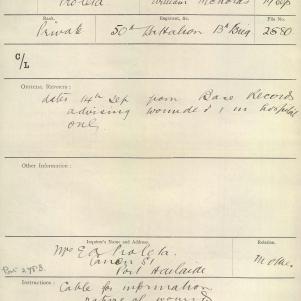 William Nicholas
Rank.
Regiment, &c.
File No.
Private
50th Battalion
Bde
2580
C/L
OFFICIAL REPORTS:
dates 14th Sep from Base Records
advising wounded & in hospital
only
Other Information:
Inquirer's Name and Address.
Relation.
Mrs E
Port Adelaide
Mother
Instructions:
Cable for information
nature of wound